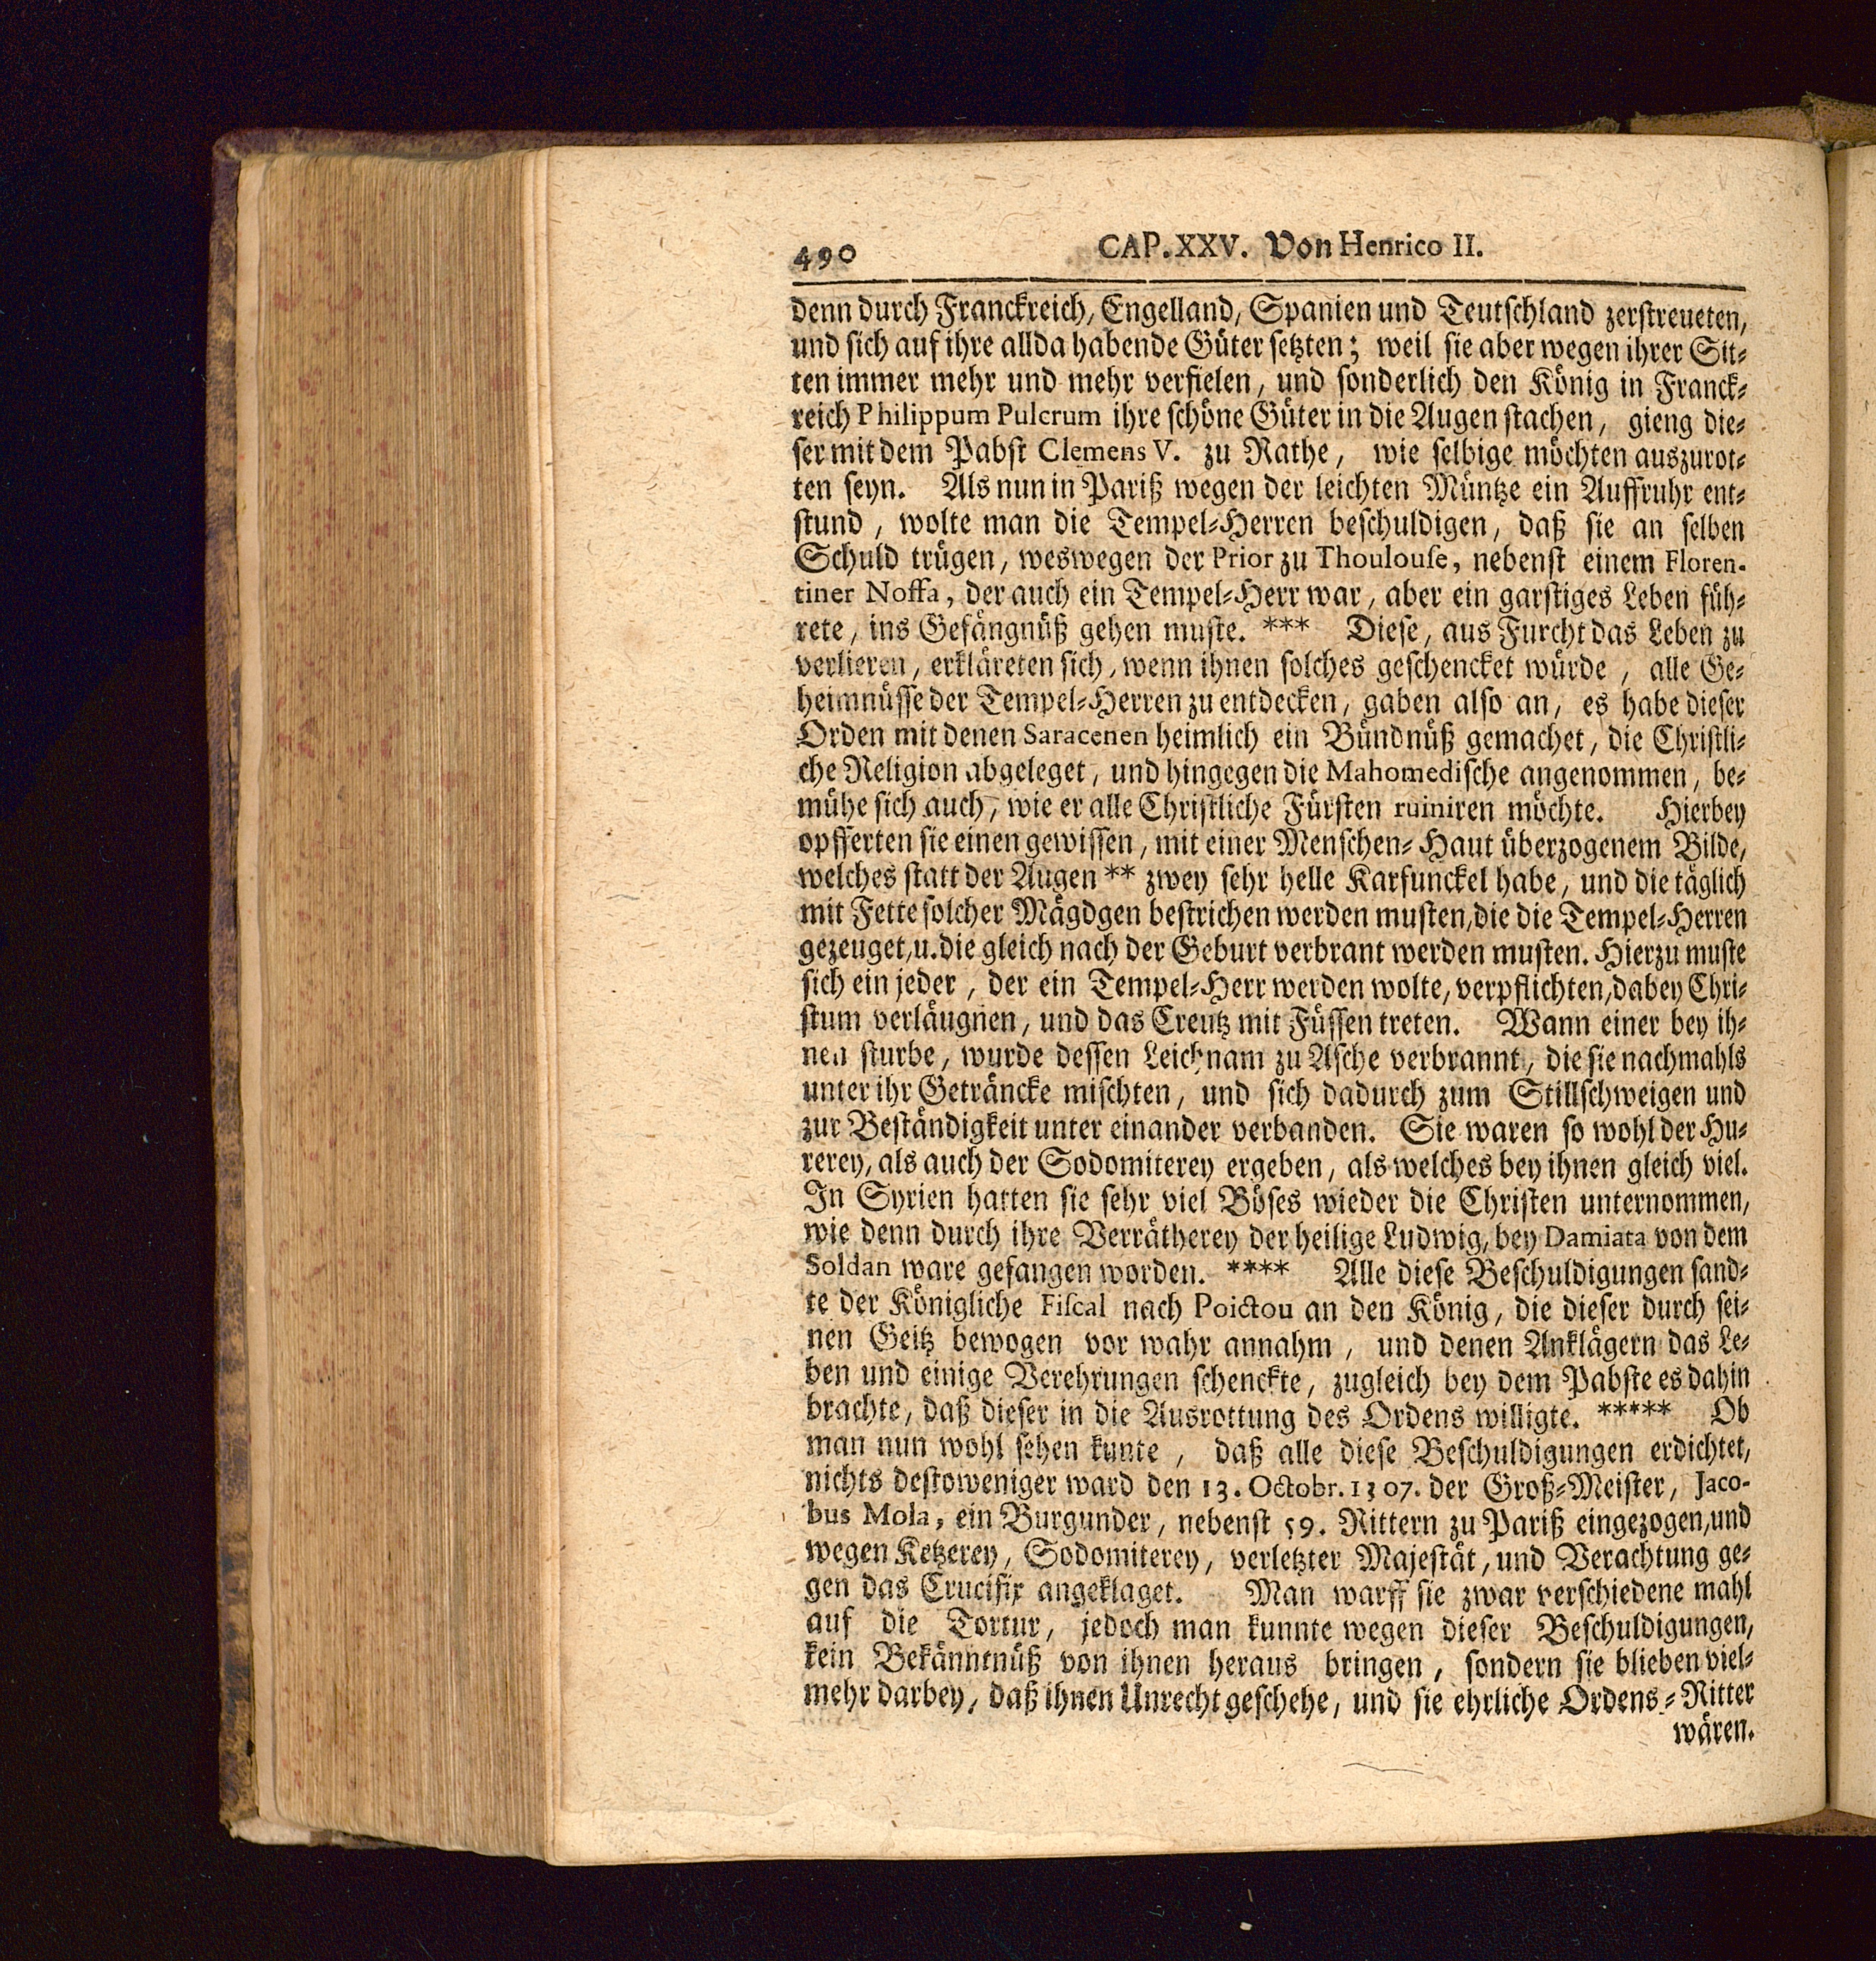 490 CAP.XXV. Von Henrico II.
denn durch Franckreich, Engelland, Spanien und Teutschland zerstreueten,
und sich auf ihre allda habende Güter setzten; weil sie aber wegen ihrer Sit-
ten immer mehr und mehr verfielen, und sonderlich den König in Franck-
reich Philippum Pulcrum ihre schöne Güter in die Augen stachen, gieng die-
ser mit dem Pabst Clemens V. zu Rathe, wie selbige möchten auszurot-
ten seyn. Als nun in Pariß wegen der leichten Müntze ein Auffruhr ent-
stund, wolte man die Tempel-Herren beschuldigen, daß sie an selben
Schuld trügen, weswegen der Prior zu Thoulouse, nebenst einem Floren-
tiner Noffa, der auch ein Tempel-Herr war, aber ein garstiges Leben füh-
rete, ins Gefängnüß gehen muste. *** Diese, aus Furcht das Leben zu
verlieren, erkläreten sich, wenn ihnen solches geschencket würde, alle Ge-
heimnüsse der Tempel-Herren zu entdecken, gaben also an, es habe dieser
Orden mit denen Saracenen heimlich ein Bündnüß gemachet, die Christli-
che Religion abgeleget, und hingegen die Mahomedische angenommen, be-
mühe sich auch, wie er alle Christliche Fürsten ruiniren möchte. Hierbey
opfferten sie einen gewissen, mit einer Menschen-Haut überzogenem Bilde,
welches statt der Augen ** zwey sehr helle Karfunckel habe, und die täglich
mit Fette solcher Mägdgen bestrichen werden musten, die die Tempel-Herren
gezeuget, u. die gleich nach der Geburt verbrant werden musten. Hierzu muste
sich ein jeder, der ein Tempel-Herr werden wolte, verpflichten, dabey Chri-
stum verläugnen, und das Creutz mit Füssen treten. Wann einer bey ih-
nen sturbe, wurde dessen Leichnam zu Asche verbrannt, die sie nachmahls
unter ihr Geträncke mischten, und sich dadurch zum Stillschweigen und
zur Beständigkeit unter einander verbanden. Sie waren so wohl der Hu-
rerey, als auch der Sodomiterey ergeben, als welches bey ihnen gleich viel.
In Syrien hatten sie sehr viel Böses wieder die Christen unternommen,
wie denn durch ihre Verrätherey der heilige Ludwig, bey Damiata von dem
Soldan ware gefangen worden. **** Alle diese Beschuldigungen sand-
te der Königliche Fiscal nach Poictou an den König, die dieser durch sei-
nen Geitz bewogen vor wahr annahm, und denen Anklägern das Le-
ben und einige Verehrungen schenckte, zugleich bey dem Pabste es dahin
brachte, daß dieser in die Ausrottung des Ordens willigte. ***** Ob
man nun wohl sehen kunte, daß alle diese Beschuldigungen erdichtet,
nichts destoweniger ward den 13. Octobr. 1307. der Groß-Meister, Jaco-
bus Mola, ein Burgunder, nebenst 59. Rittern zu Pariß eingezogen, und
wegen Ketzerey, Sodomiterey, verletzter Majestät, und Verachtung ge-
gen das Crucifix angeklaget. Man warff sie zwar verschiedene mahl
auf die Tortur, jedoch man kunnte wegen dieser Beschuldigungen,
kein Bekänntnüß von ihnen heraus bringen, sondern sie blieben viel-
mehr darbey, daß ihnen Unrecht geschehe, und sie ehrliche Ordens-Ritter
wären.